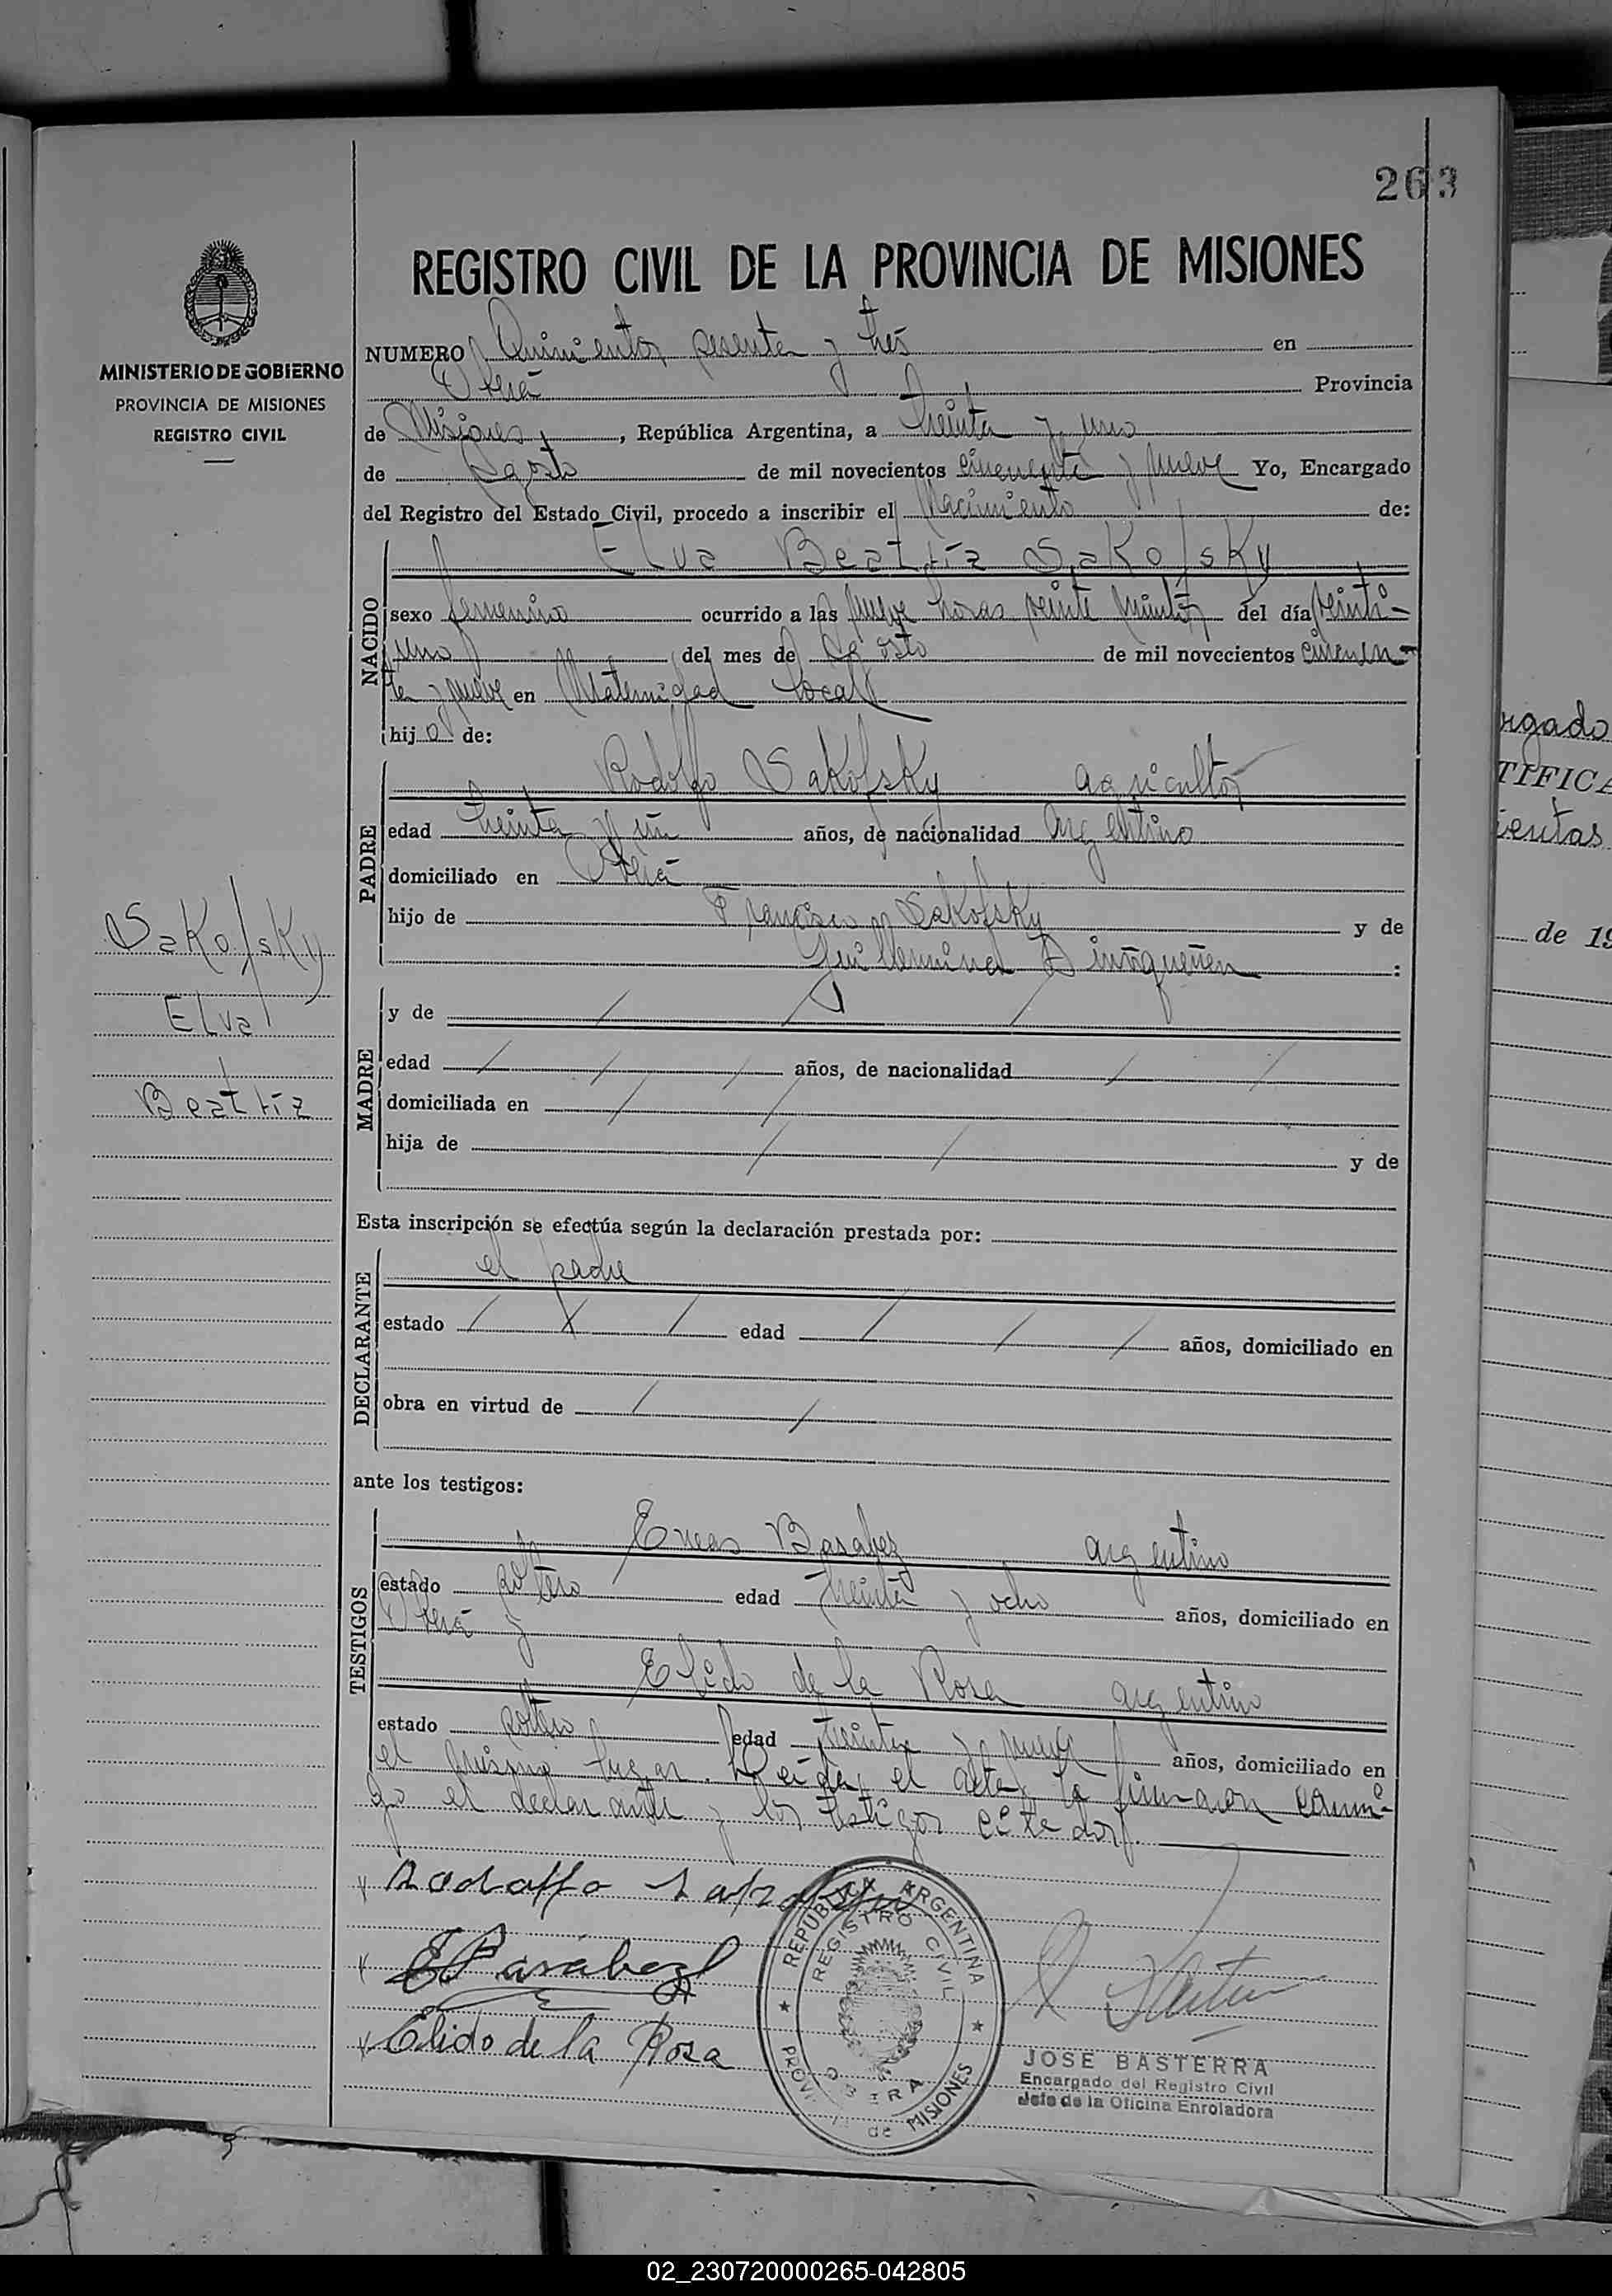 263
REGISTRO CIVIL DE LA PROVINCIA DE MISIONES
MINISTERIO DE GOBIERNO
PROVINCIA DE MISIONES
REGISTRO CIVIL
NUMERO Quinientos sesenta y tres en
Oberá Provincia
de Misiones, República Argentina, a treinta y uno
de Agosto de mil novecientos cincuenta y nueve Yo, Encargado
del Registro del Estado Civil, procedo a inscribir el Nacimiento de:
NACIDO
Elva Beatríz Sakofsky
sexo femenino ocurrido a las nueve horas veinte minutos del día veinti-
uno del mes de Agosto de mil novecientos cincuen-
ta y nueve en Maternidad local
hija de:
PADRE
Rodolfo Sakofsky agricultor
edad treinta y un años, de nacionalidad Argentino
domiciliado en Oberá
hijo de Francisco Sakofsky y de
Guillermina :
MADRE
y de
edad años, de nacionalidad
domiciliada en
hija de y de
Sakofsky
Elva
Beatríz
Esta inscripción se efectúa según la declaración prestada por:
DECLARANTE
el padre
estado edad años, domiciliado en
obra en virtud de
ante los testigos:
TESTIGOS
Eneas Basabez argentino
estado soltero edad treinta y ocho años, domiciliado en
Oberá y
Elido de la Rosa argentino
estado soltero edad treinta y nueve años, domiciliado en
el mismo lugar. Leida el acta, la firmaron conmi-
go el declarante y los testigos citados.
Rodolfo
Elido de la Rosa
REPUBLICA ARGENTINA
REGISTRO CIVIL
OBERA
PROV. de MISIONES
JOSE BASTERRA
Encargado del Registro Civil
Jefe de la Oficina Enroladora
rgado
TIFICA
ientas
de 19
02_230720000265-042805